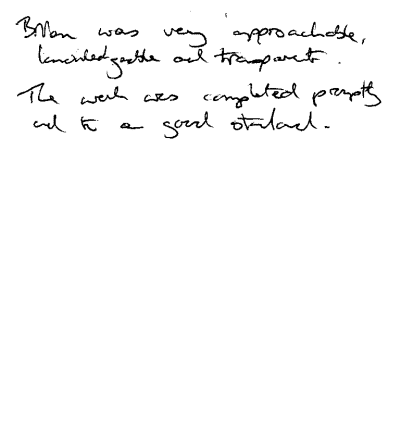 was very approachable,
knowledgeable and transparent.
The work was completed promptly
and to a good standard.